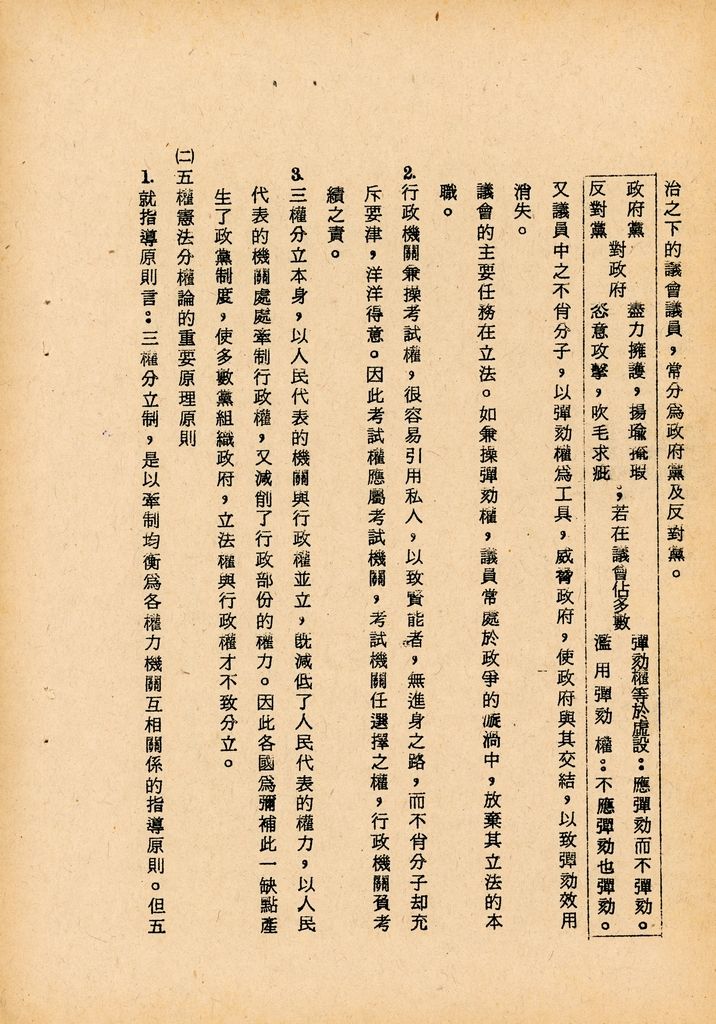 治之下的議會議員，常分爲政府黨及反對黨。
政府黨　盡力擁護，揚瑜掩瑕　彈劾權等於虛設：應彈劾而不彈劾。
對政府　，若在議會佔多數
反對黨　恣意攻擊，吹毛求疵　濫用彈劾權：不應彈劾也彈劾。
又議員中之不肖分子，以彈劾權爲工具，威脅政府，使政府與其交結，以致彈劾效用
消失。
議會的主要任務在立法。如兼操彈劾權，議員常處於政爭的漩渦中，放棄其立法的本
職。
2. 行政機關兼操考試權，很容易引用私人，以致賢能者，無進身之路，而不肖分子却充
斥要津，洋洋得意。因此考試權應屬考試機關，考試機關任選擇之權，行政機關負考
績之責。
3. 三權分立本身，以人民代表的機關與行政權並立，既減低了人民代表的權力，以人民
代表的機關處處牽制行政權，又減削了行政部份的權力。因此各國爲彌補此一缺點產
生了政黨制度，使多數黨組織政府，立法權與行政權才不致分立。
㈡五權憲法分權論的重要原理原則
1. 就指導原則言：三權分立制，是以牽制均衡爲各權力機關互相關係的指導原則。但五